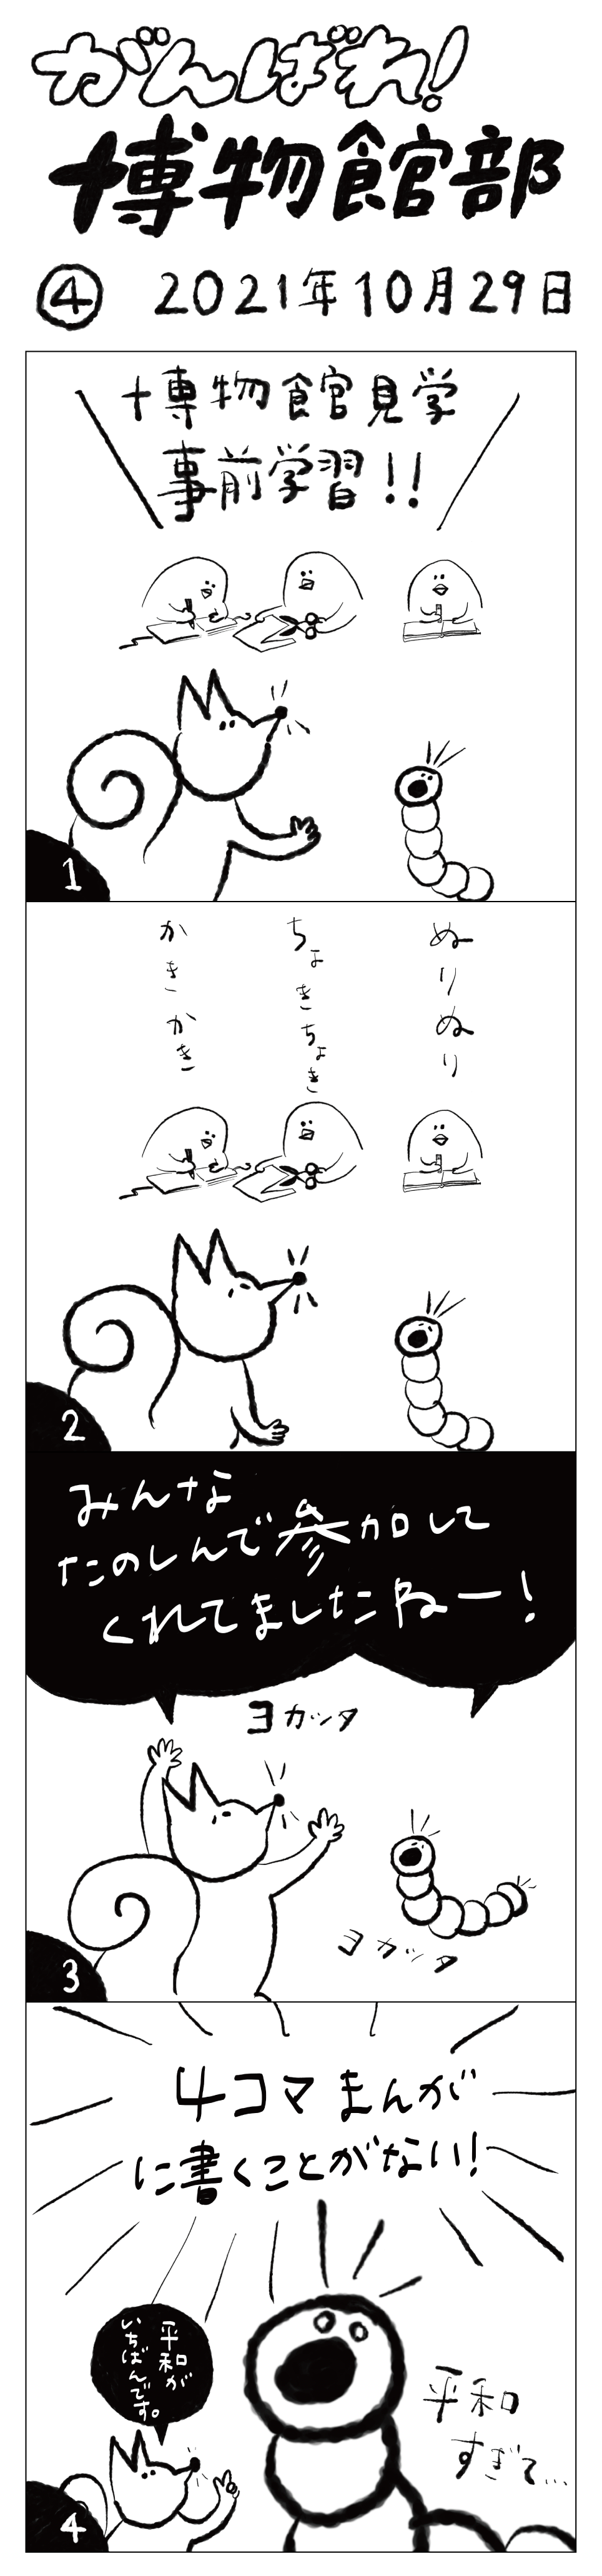 がんばれ!
博物館部
④ 2021年10月29日
博物館見学
事前学習!!
1
かきかき
ちょきちょき
ぬりぬり
2
みんな
たのしんで参加して
くれてましたねー!
ヨカッタ
ヨカッタ
3
4コマまんが
に書くことがない!
平和が
いちばんです。
平和
すぎて…
4